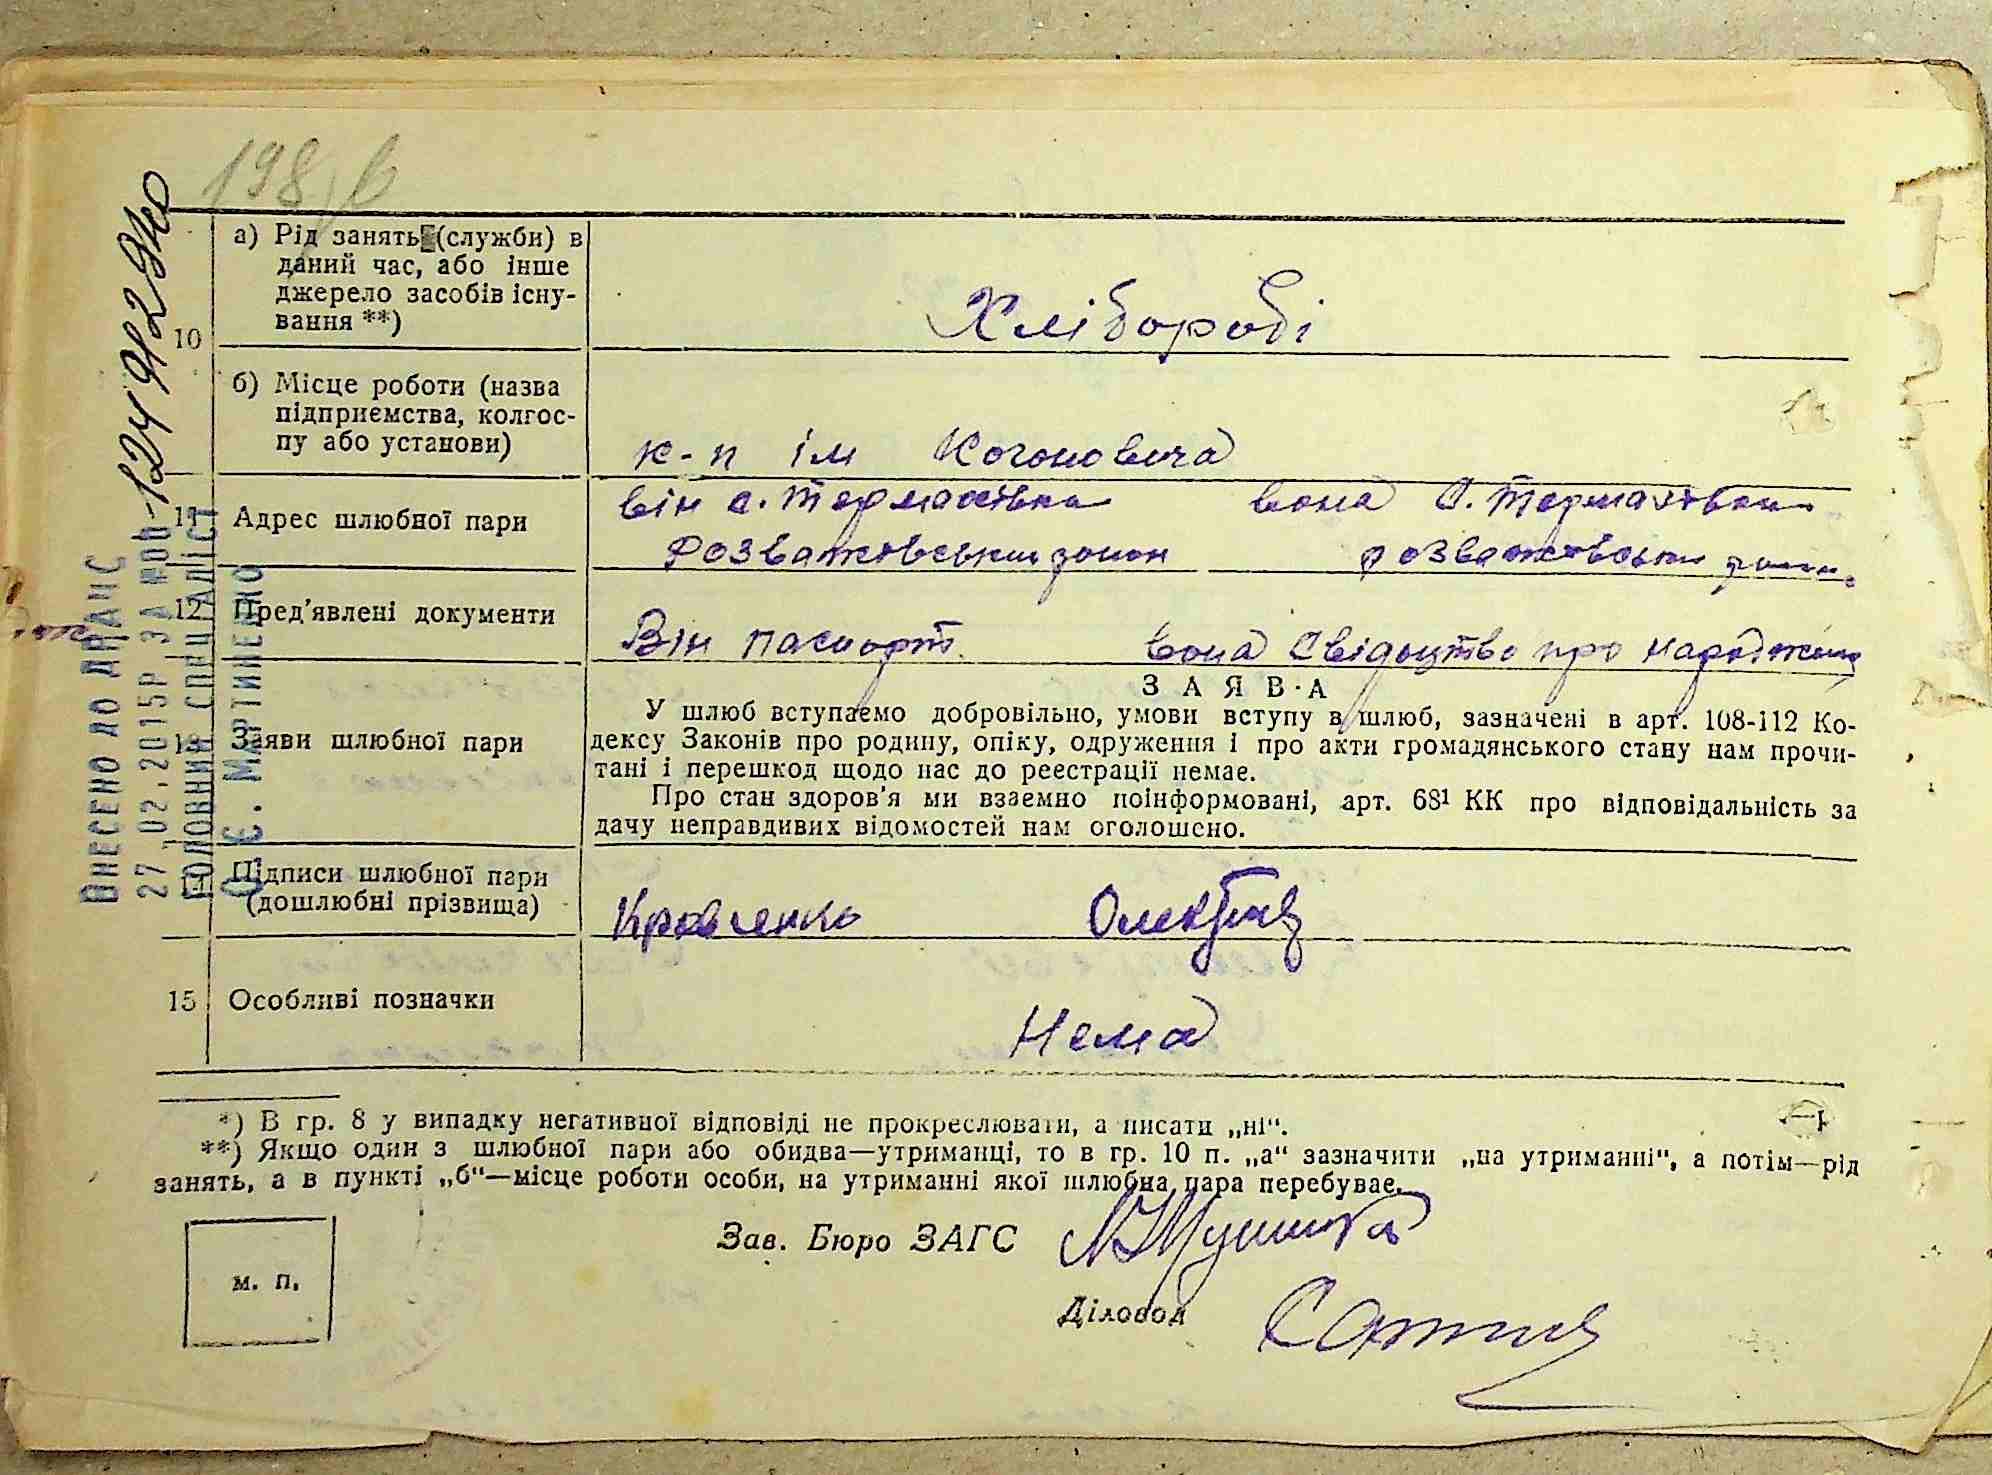 198 в
10
а) Рід занять (служби) в
даний час, або інше
джерело засобів існу-
вання **)
Хліборобі
б) Місце роботи (назва
підприємства, колгос-
пу або установи)
к-п ім Когоновича
11
Адрес шлюбної пари
він с. Термахівка вона С. Термахівка
Розважівський район розважівський район
12
Пред'явлені документи
Він паспорт. вона свідоцтво про народження
Заяви шлюбної пари
ЗАЯВА
У шлюб вступаємо добровільно, умови вступу в шлюб, зазначені в арт. 108-112 Ко-
дексу Законів про родину, опіку, одруження і про акти громадянського стану нам прочи-
тані і перешкод щодо нас до реєстрації немає.
Про стан здоров'я ми взаємно поінформовані, арт. 68¹ КК про відповідальність за
дачу неправдивих відомостей нам оголошено.
14
Підписи шлюбної пари
(дошлюбні прізвища)
Кравченко
15
Особливі позначки
Нема
*) В гр. 8 у випадку негативної відповіді не прокреслювати, а писати „ні“.
**) Якщо один з шлюбної пари або обидва—утриманці, то в гр. 10 п. „а“ зазначити „на утриманні“, а потім—рід
занять, а в пункті „б“—місце роботи особи, на утриманні якої шлюбна пара перебуває.
Зав. Бюро ЗАГС
Діловод
м. п.
ВНЕСЕНО ДО ДРАЦС
27.02.2015Р ЗА №
ГОЛОВНИЙ СПЕЦІАЛІСТ
Є. МАРТИНЕНКО